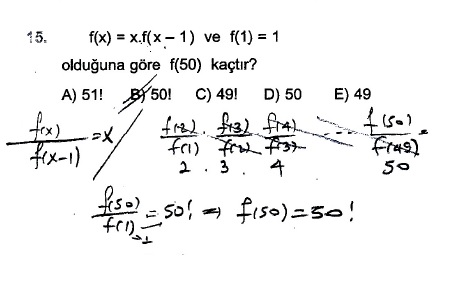 15. f(x) = x.f(x – 1) ve f(1) = 1
olduğuna göre f(50) kaçtır?
A) 51! B) 50! C) 49! D) 50 E) 49
f(x)/f(x-1) = x f(2)/f(1) . f(3)/f(2) f(4)/f(3) ---- f(50)/f(49) =
2 . 3 . 4 50
f(50)/f(1) = 50! ⇒ f(50) = 50!
→1